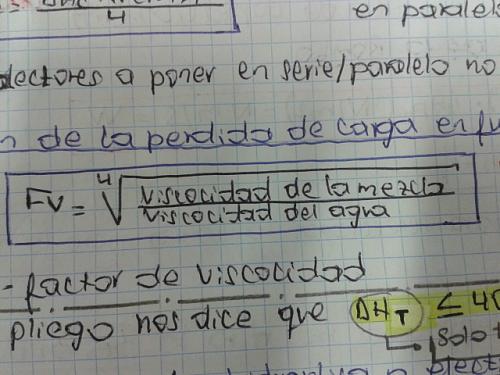 4
en paralelo
lectores a poner en serie/paralelo no
n de la perdida de carga en fu
Fv = ⁴√ viscocidad de la mezcla
viscocidad del agua
- factor de viscocidad
pliego nos dice que ΔHT ≤ 40
solo